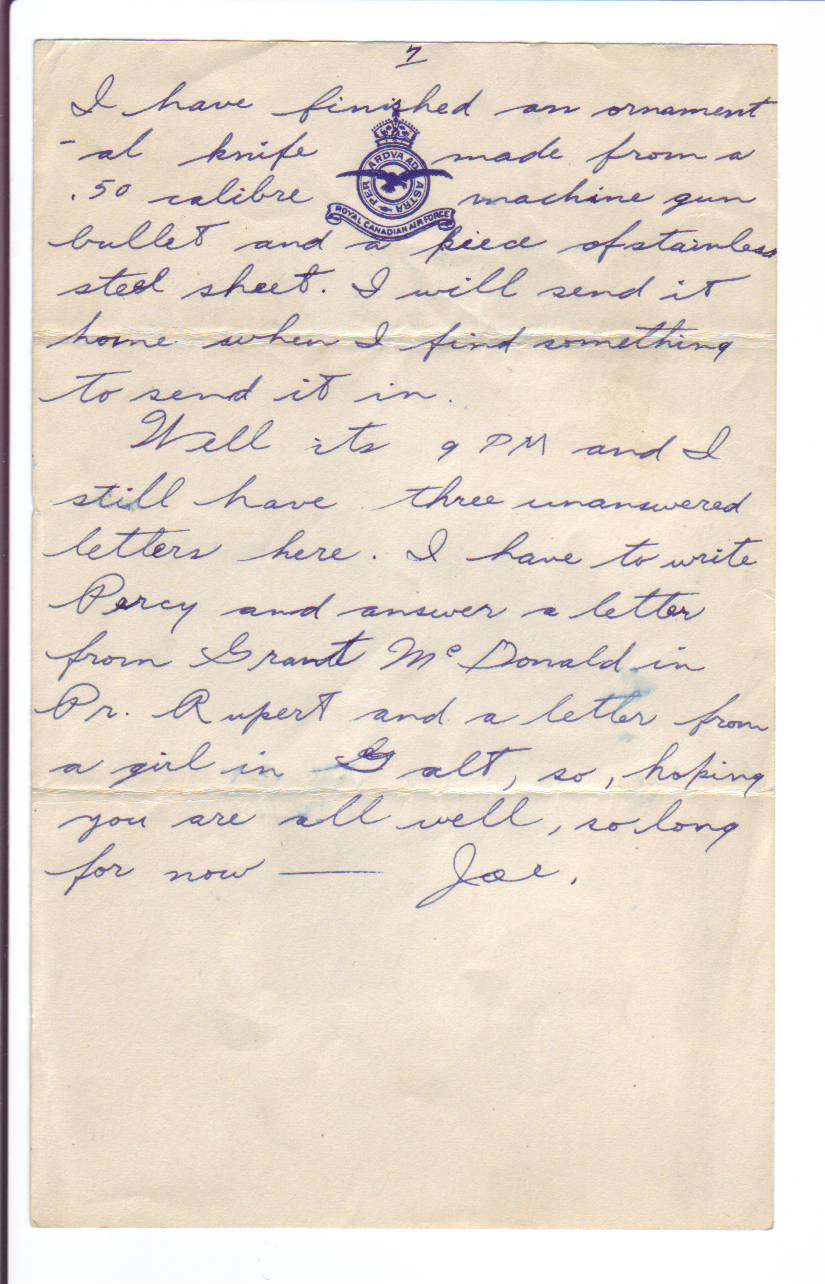 7
I have finished an ornament
-al knife made from a
.50 calibre machine gun
PER ARDVA AD ASTRA
ROYAL CANADIAN AIR FORCE
bullet and a piece of stainless
steel sheet. I will send it
home when I find something
to send it in.
Well its 9 PM and I
still have three unanswered
letters here. I have to write
Percy and answer a letter
from Grant McDonald in
Pr. Rupert and a letter from
a girl in Galt, so, hoping
you are all well, so long
for now — Joe.